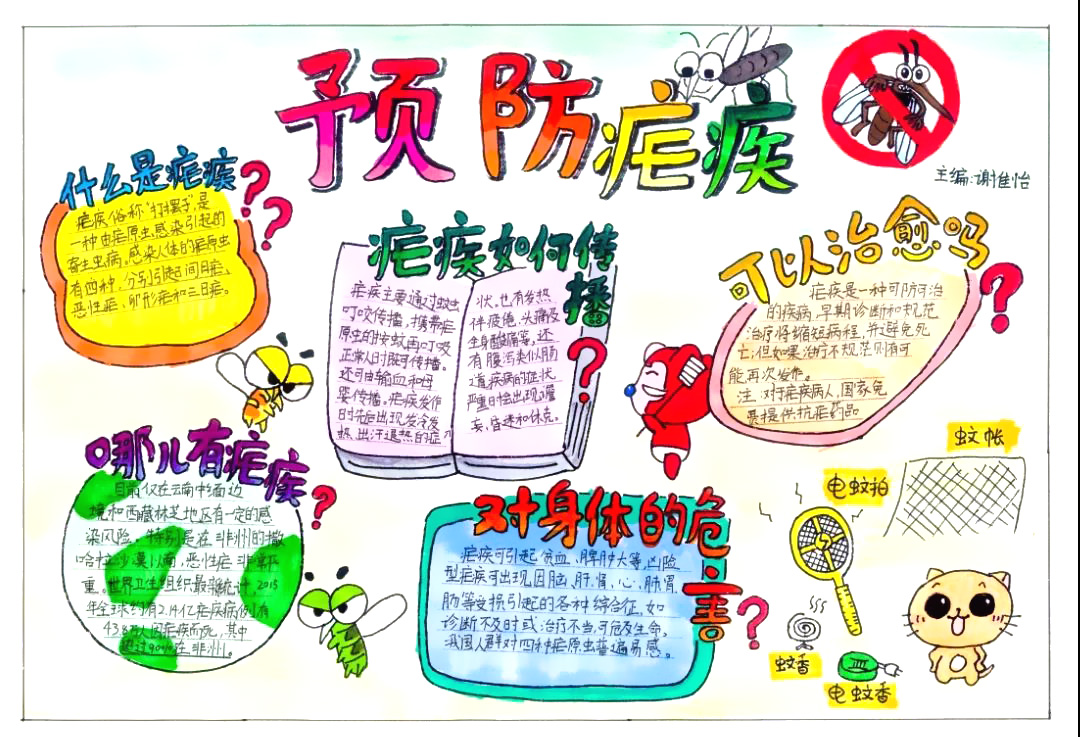 预防疟疾
主编:谢佳怡
什么是疟疾??
疟疾俗称“打摆子”是
一种由疟原虫感染引起的
寄生虫病。感染人体的疟原虫
有四种,分别引起间日疟、
恶性疟、卵形疟和三日疟。
疟疾如何传播?
疟疾主要通过蚊虫
叮咬传播,携带疟
原虫的按蚊再叮咬
正常人时既可传播。
还可由输血和母
婴传播。疟疾发作
时先后出现发冷发
热、出汗退热的症
状,也有发热
伴疲倦、头痛及
全身酸痛等,还
有腹泻类似肠
道疾病的症状
严重时会出现谵
妄、昏迷和休克。
可以治愈吗?
疟疾是一种可防可治
的疾病,早期诊断和规范
治疗将缩短病程,并避免死
亡;但如果治疗不规范则有可
能再次发作。
注:对于疟疾病人,国家免
费提供抗疟药品
哪儿有疟疾?
目前仅在云南中缅边
境和西藏林芝地区有一定的感
染风险,特别是在非洲的撒
哈拉沙漠以南,恶性疟非常严
重。世界卫生组织最新统计,2015
年全球约有2.14亿疟疾病例,有
43.8万人因疟疾而死,其中
超过90%在非洲。
对身体的危害?
疟疾可引起贫血、脾肿大等,凶险
型疟疾可出现因脑、肝、肾、心、肺、胃
肠等受损引起的各种综合征,如
诊断不及时或治疗不当,可危及生命,
我国人群对四种疟原虫普遍易感。
蚊帐
电蚊拍
蚊香
电蚊香